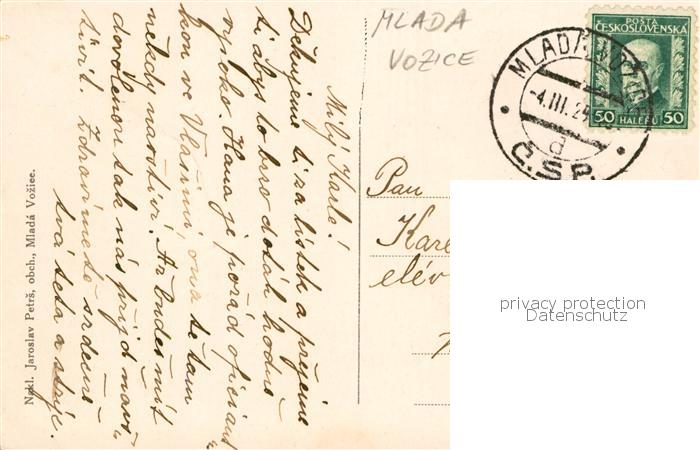 Milý Karle!
Děkujeme ti za lístek a přejeme
ti abys to brzo dotáh hodně
vysoko. Hana je pořád oficiant
kou ve Vlašimi, ona tě tam
někdy navštíví. Až budeš mít
dovolenou tak nás přijď navš
tívit. Zdraví mě tě srdečně
tvá teta a strýc.
Nakl. Jaroslav Petrš, obch., Mladá Vožice.
MLADA
VOZICE
MLADÁ VOŽICE
-4.III.24
d
Č.S.P.
POŠTA
ČESKOSLOVENSKÁ
50 HALÉŘŮ 50
Pan
elév
privacy protection
Datenschutz